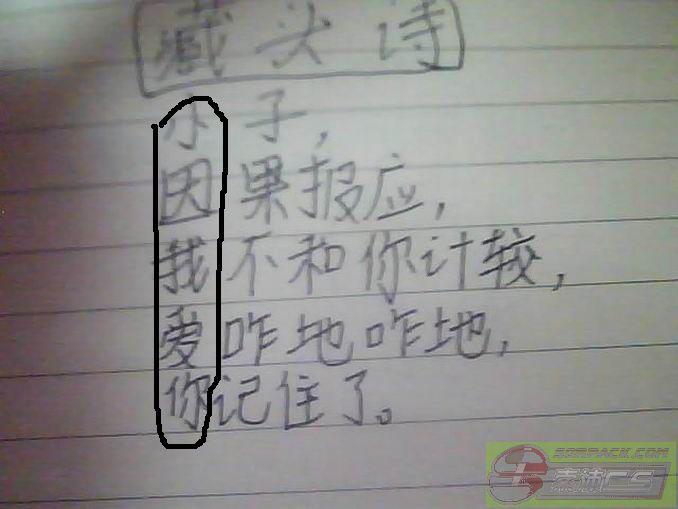 藏头诗
小子,
因果报应,
我不和你计较,
爱咋地咋地,
你记住了。